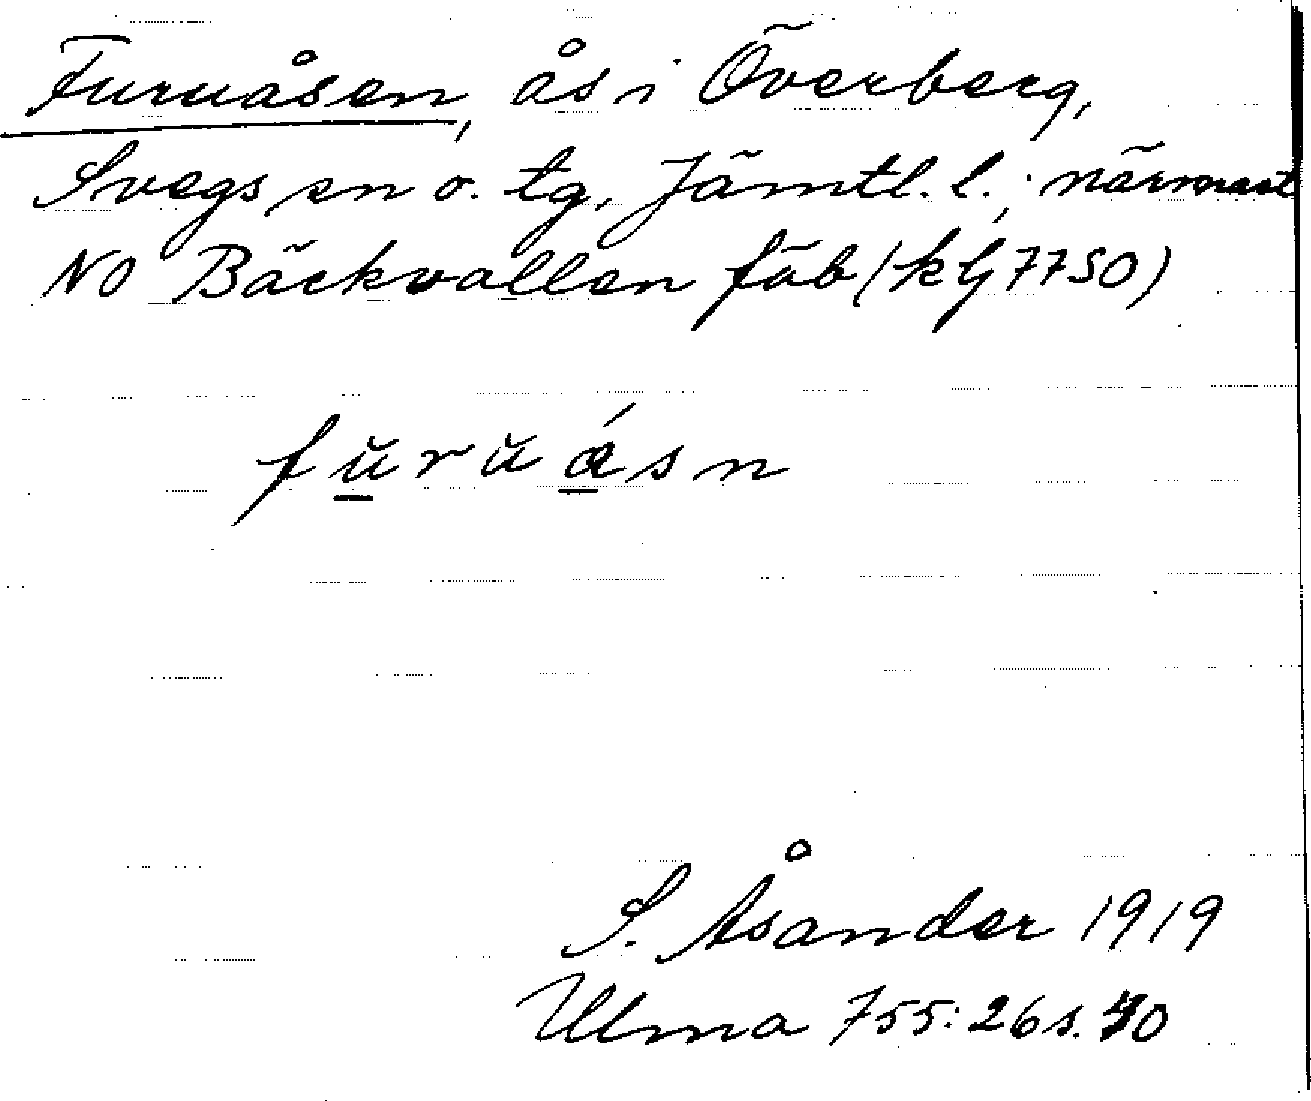 Furuåsen, ås i Överberg,
Svegs sn o. tg, Jämtl. l.; närmast
NO Bäckvallen fäb (kbl 7750)
fŭrŭásn
S. Åsander 1919
Ulma 755: 26 s. 40